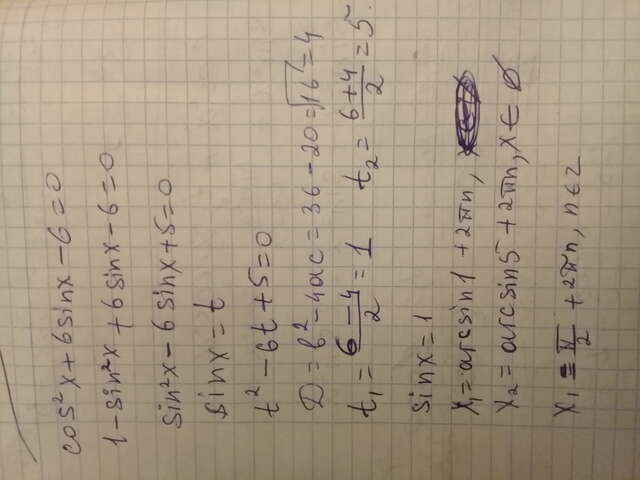 cos²x + 6sinx − 6 = 0
1 − sin²x + 6sinx − 6 = 0
sin²x − 6sinx + 5 = 0
sinx = t
t² − 6t + 5 = 0
D = b² − 4ac = 36 − 20 = √16 = 4
t₁ = (6 − 4)/2 = 1 t₂ = (6 + 4)/2 = 5.
sinx = 1
x₁ = arcsin1 + 2πn,
x₂ = arcsin5 + 2πn, x ∈ ∅
x₁ = π/2 + 2πn, n ∈ z